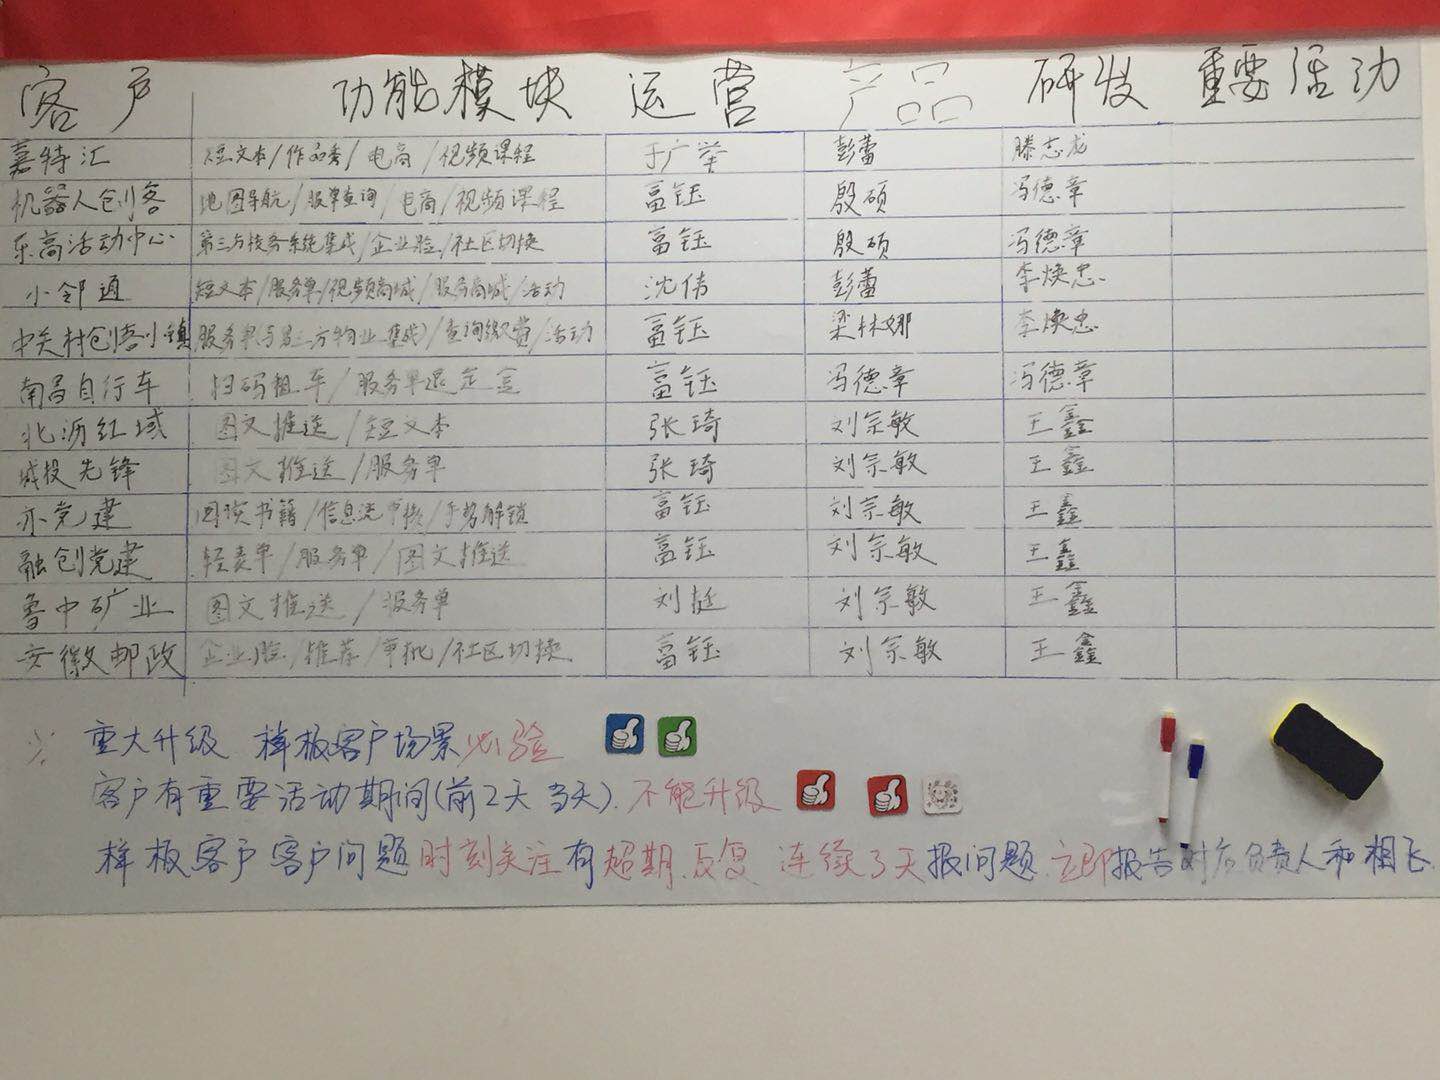 客户 功能模块 运营 产品 研发 重要活动
嘉特汇 短文本/作品秀/电商/视频课程 于广举 彭蕾 滕志龙
机器人创客 地图导航/报单查询/电商/视频课程 富钰 殷硕 冯德章
乐高活动中心 第三方技务系统集成/企业脸/社区切换 富钰 殷硕 冯德章
小邻通 短文本/服务单/视频商城/服务商城/活动 沈伟 彭蕾 李焕忠
中关村创客小镇 服务单(与第三方物业集成)/查询缴费/活动 富钰 梁林娜 李焕忠
南昌自行车 扫码租车/服务单退定金 富钰 冯德章 冯德章
北沥红域 图文推送/短文本 张琦 刘宗敏 王鑫
城投先锋 图文推送/服务单 张琦 刘宗敏 王鑫
亦党建 阅读书籍/信息流审核/手势解锁 富钰 刘宗敏 王鑫
融创党建 轻表单/服务单/图文推送 富钰 刘宗敏 王鑫
鲁中矿业 图文推送/服务单 刘挺 刘宗敏 王鑫
安徽邮政 企业脸/推荐/审批/社区切换 富钰 刘宗敏 王鑫
重大升级 样板客户场景必验
客户有重要活动期间(前2天 当天).不能升级
样板客户客户问题时刻关注有超期.反复 连续3天报问题.立即报告对应负责人和相飞.